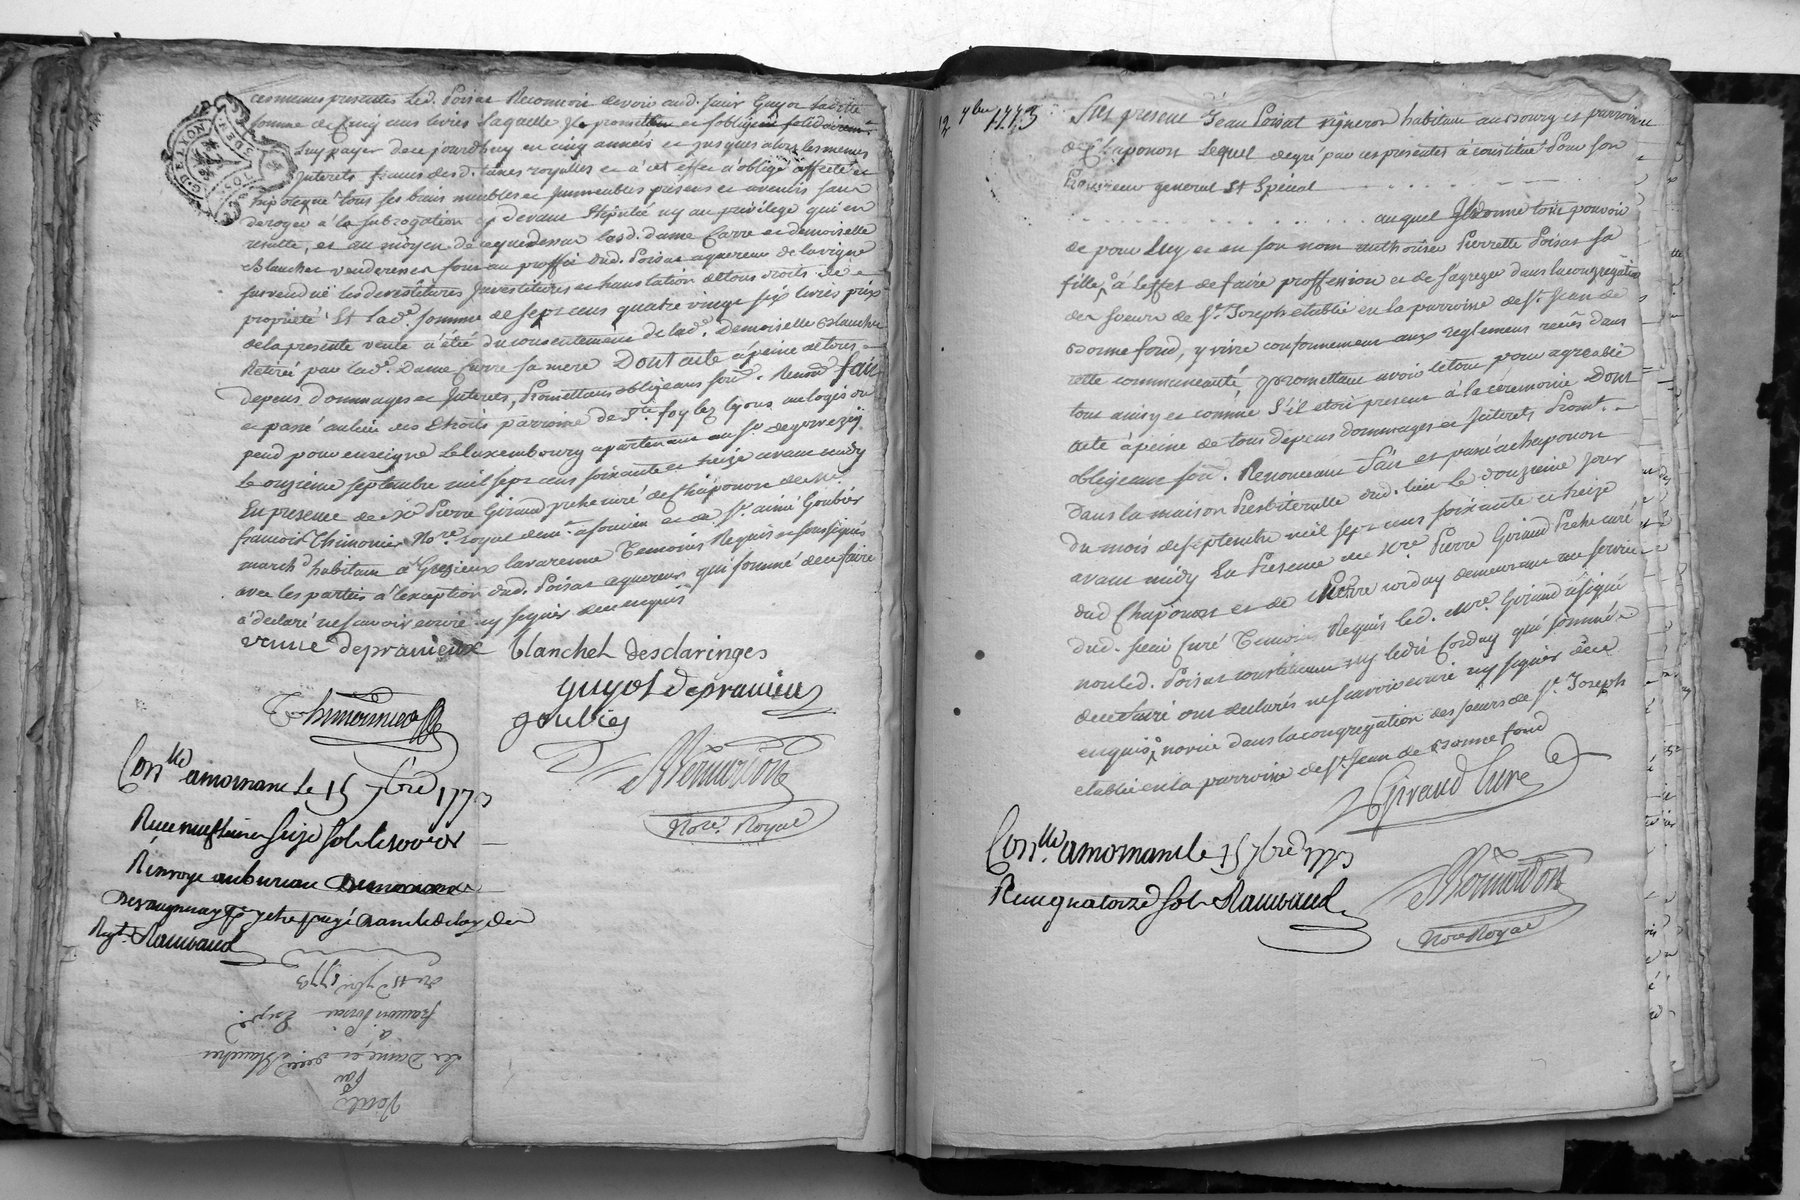 ces memes presentes Led. Poisat Reconnoit devoir aud. sieur Guyot ladite
somme de Cinq cens livres Laquelle Ils promettent et sobligent solidairemt.
Luy payer de ce jourdhuy en cinq années et jusques alors les memes
Interets francs des d. taxes royalles et à cet effet a obligé affecté et
hipotequé tous ses biens meubles et Immeubles présens et avenirs sans
deroger à la subrogation cy devant stipulée ny au privilege qui en
resulte, et au moyen de ce que dessus lesd. dame Carre et demoiselle
Blanchet venderesses font au proffit dud. Poisat aquereur de la vigne
survendüe les devestitures Investitures et translation de tous droits de
propriété Et lade. somme de sept cens quatre vingt six livres prix
de la presente vente a été du consentement de lade. Demoiselle Blanchet
Retirée par lad. Dame Carre sa mere Dont acte à peine de tous
depens Dommages et Interets, Promettans obligeans soud. Renond. fait
et passé au lieu des Etroits parroisse de Ste. foy lez lyon au logis ou
pend pour enseigne Le Luxembourg apartenant au Sr.
Le onzieme septembre mil sept cens soixante et treize avant midy
En presence de Me Pierre Giraud prêtre curé de Chaponost de Me
francois Thimonier Nore. royal demt. a soucieu et de Sr. aimé Goubier
marchd. habitant à Grezieux lavarenne Temoins Requis et soussignés
avec les parties à l'exception dud. Poisat aquereur qui sommé de ce faire
à declaré ne scavoir ecrire ny signer de ce enquis
veuve depravieux Blanchet desclaringes
guyot depravieux
Thimonnier goubier
Mermordon
Nore. Royal
Conllé a mornant le 15 7bre 1773
Recu neuf livres seize sols
Renvoyé au bureau
Rgt. Raimbaud
Vente
Par
Les Dame et Delle Blanchet
à
francois Poisat
du 11 7bre 1773
12 7bre 1773
Fut présent Jean Poisat vigneron habitant au Bourg et parroisse
de Chaponost Lequel de gré par ces presentes à constitué Pour son
Procureur general Et Spécial
auquel Il donne tout pouvoir
de pour Luy et en son nom authoriser Pierrette Poisat sa
fille à leffet de faire proffession et de s'agreger dans la congregation
des soeurs de St. Joseph etablie en la parroisse de St. Jean de
Bonnefond, y vivre conformement aux reglemens recûs dans
cette communeauté, promettant avoir le tout pour agreable
tout ainsy et comme s'il etoit present à la céremonie Dont
acte à peine de tous depens dommages et Interets, Promt.
obligeans soud. Renonceans fait et passé a chaponost
Dans la maison Presbiteralle dud. lieu Le douzieme jour
Du mois de septembre mil sept cens soixante et treize
avant midy En Presence de Mre. Pierre Giraud Prêtre curé
dud Chaponost et de Pierre corday demeurant au service
dud. sieur Curé Temoins Requis led. Mre. Giraud à signé
non led. Poisat constituant ny ledit Corday qui sommés
de ce faire ont declarés ne scavoir ecrire ny signer de ce
enquis novice dans la congregation des soeurs de St. Joseph
etablie en la parroisse de St. Jean de Bonnefond
Giraud Curé
Mermordon
Nore Royal
Conllé. a mornant le 15 7bre 1773
Recu quatorze sols Raimbaud